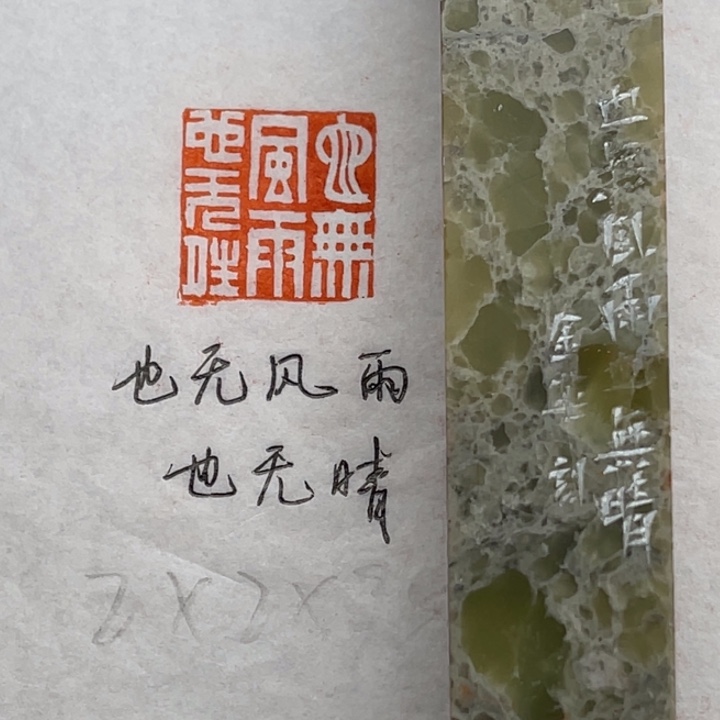 也無
風雨
也无晴
也无风雨
也无晴
也無風雨
無晴
刻
2×2×